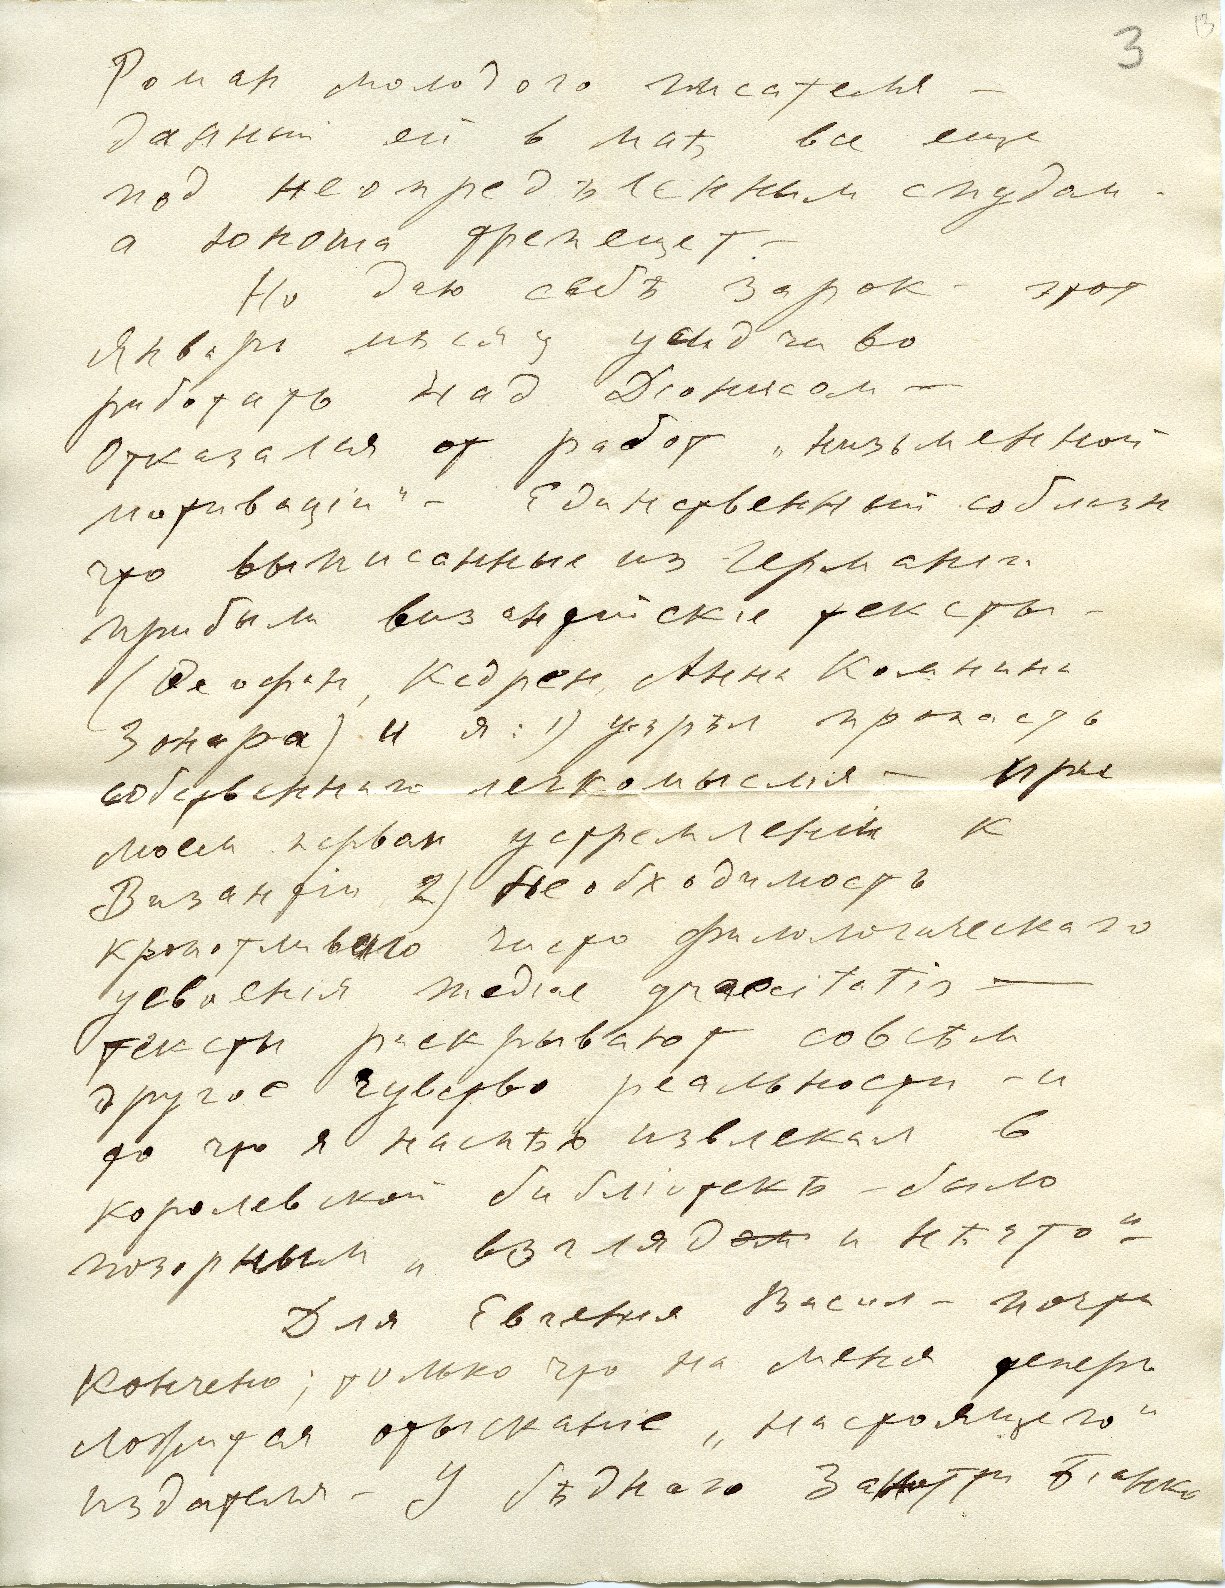 3
Роман молодого писателя –
данный ей в маѣ все еще
под неопредѣленным спудом –
а юноша трепещет –
Но даю себѣ зарок – этот
Январь мѣсяц усидчиво
работать над Дюнисом –
Отказался от работ „низьменной
мотиваціи" – Единственный соблазн
что выписанные из Германіи
прибыли византійскіе тексты –
(Феофан, Кедрен, Анна Комнина
Зонара) и я: 1) узрѣл пропасть
собственнаго легкомыслія – при
моем первом устремленіи к
Византіи 2) необходимость
кропотливаго чисто филологическаго
усвоенія mediae graecitatis —
тексты раскрывают совсѣм
другое чувство реальности – и
то что я наспѣх извлекал в
королевской библіотекѣ – было
позорным „взгляд и нѣчто" –
Для Евгенія Васил – почти
кончено; только что на меня теперь
ложится отысканіе „настоящего"
издателя – У бѣднаго Занотти Біанко